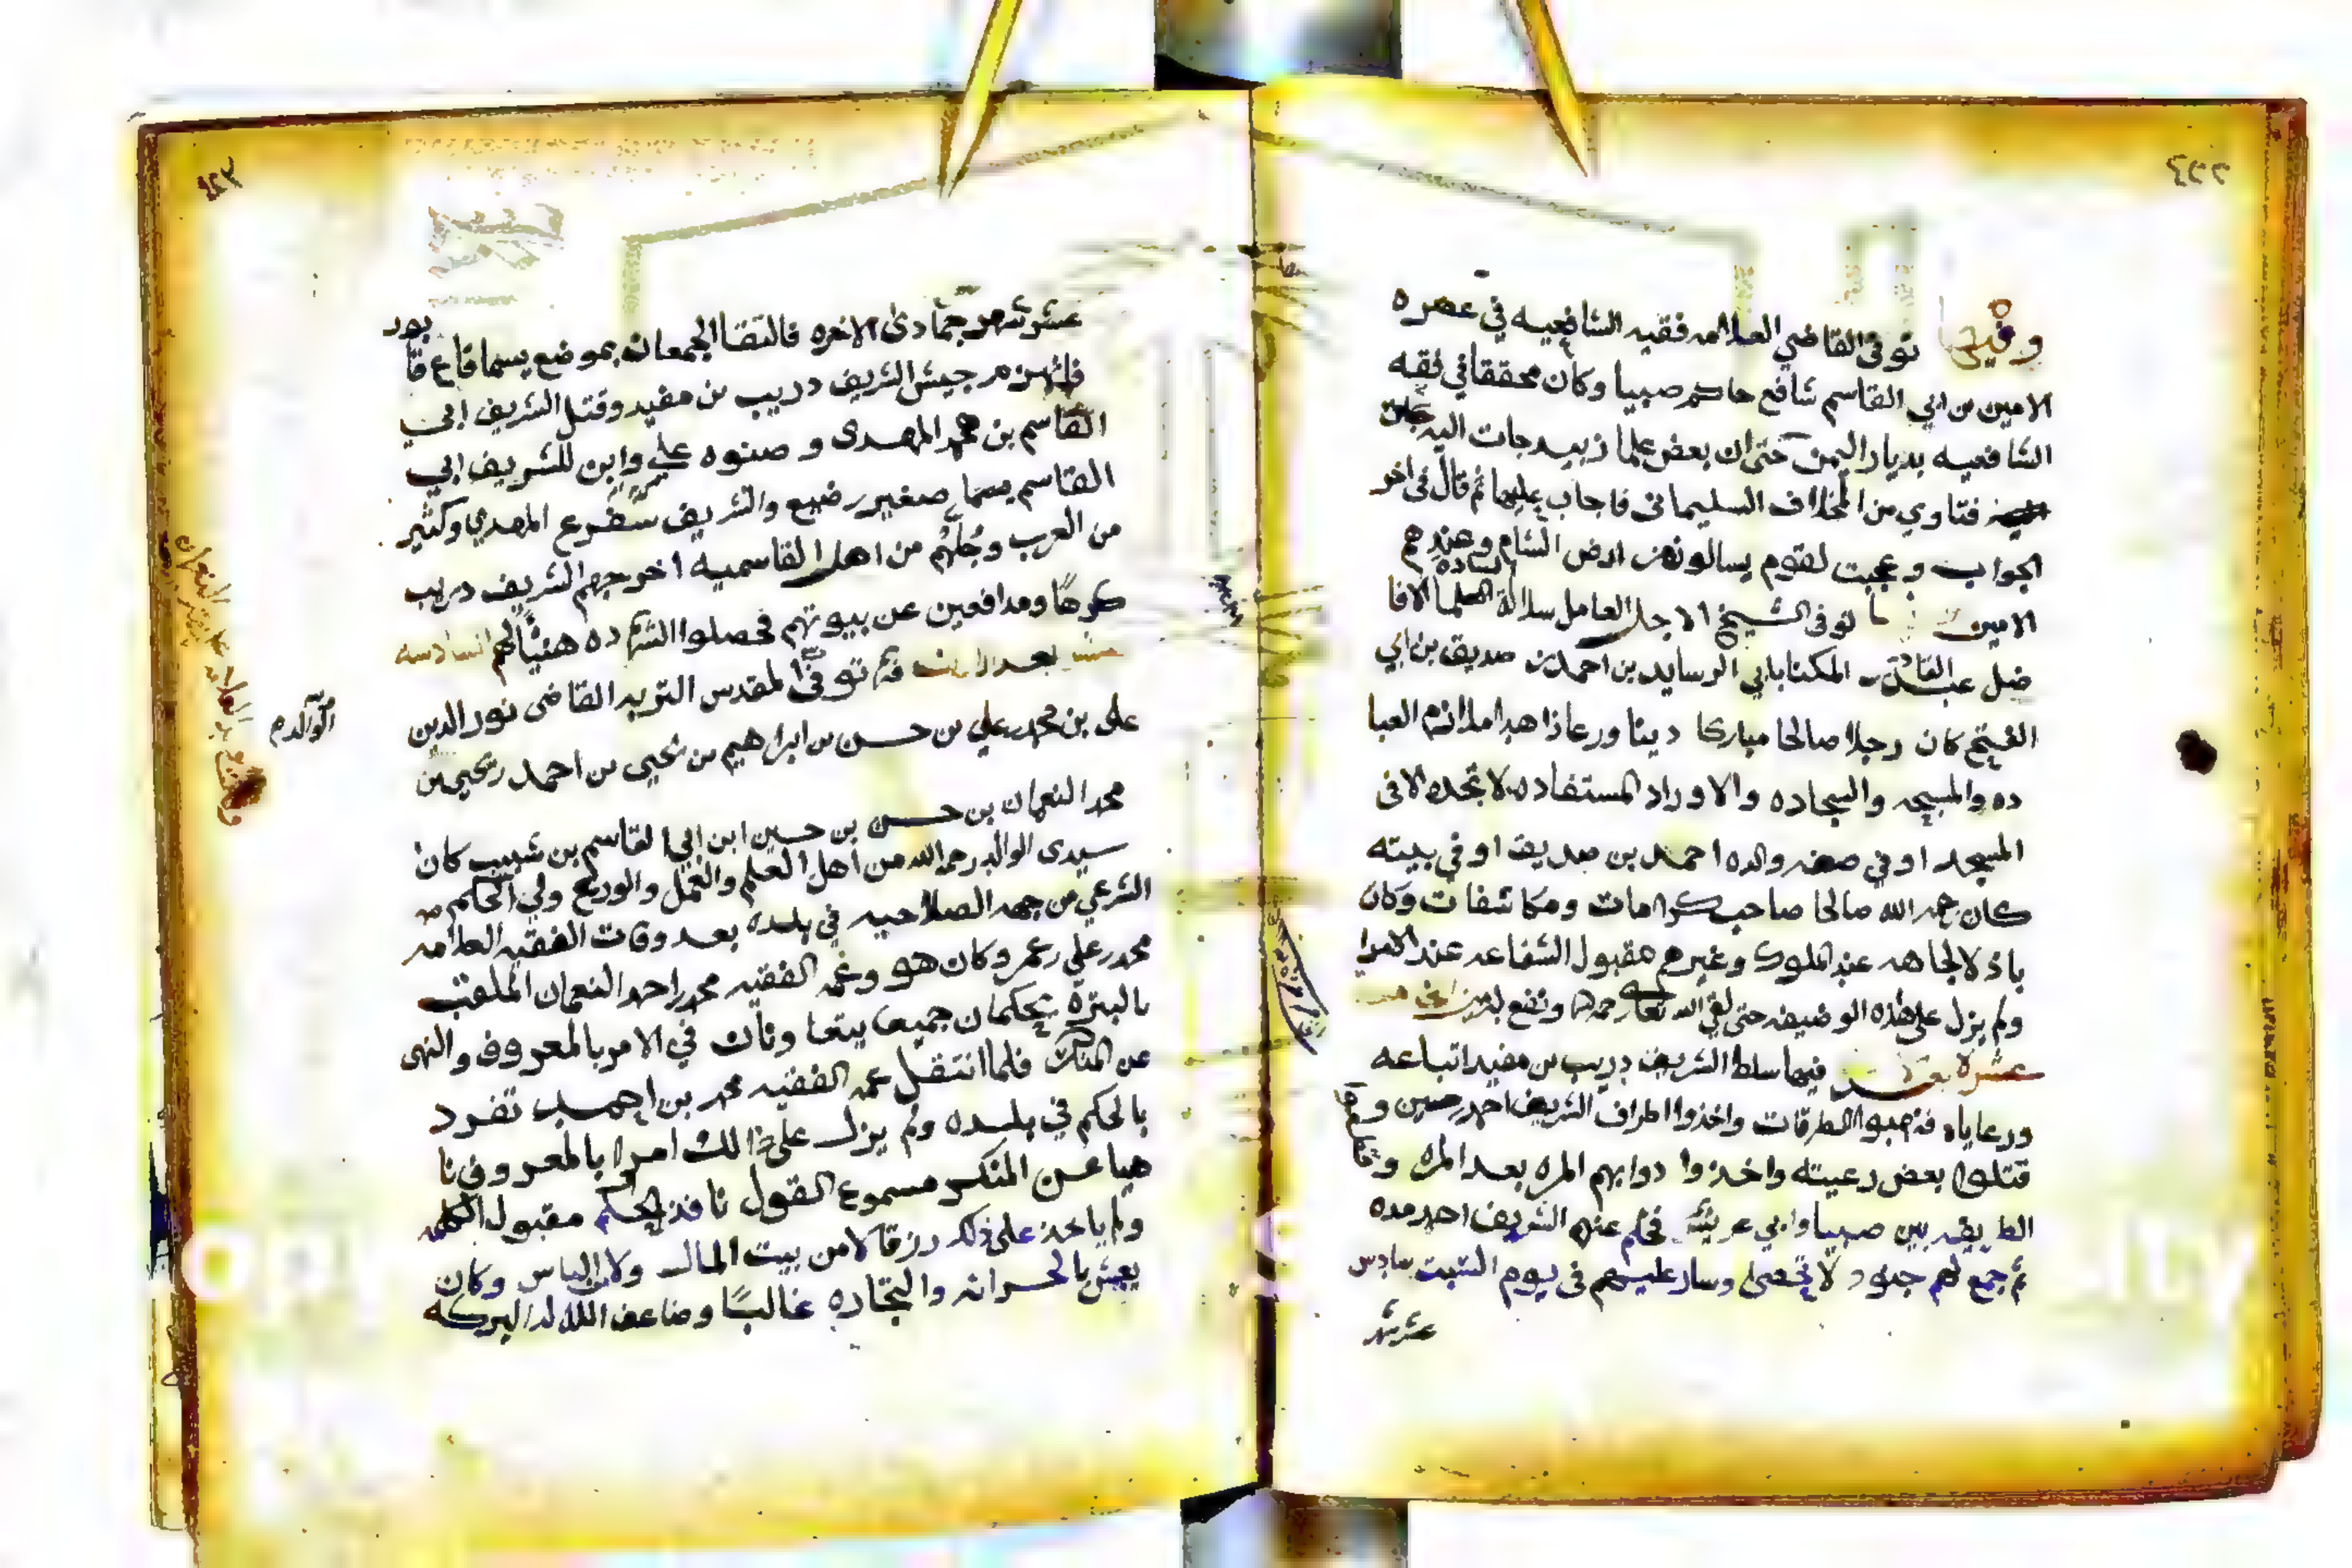 ٤٢٢
وفيها توفى القاضي العلامه فقيه الشافعيه في عصره
الامين بن ابي القاسم شافع حاكم صبيا وكان محققا في فقه
الشافعيه بديار اليمن حتى ان بعض علما زبيد جات اليه
فتاوي من المخلاف السليماني فاجاب عليها ثم قال في اخر
الجواب وعجبت لقوم يسالونهن ارض الشام وعندهم
الامين توفى الشيخ الاجل العامل سلالة العلما الافا
ضل عبد القادر المكنا بابي الرسايد بن احمد بن صديق بن ابي
الفتح كان رجلا صالحا مباركا دينا ورعا زاهدا ملازم العبا
ده والمسبحه والسجاده والاوراد المستفاده لا تجده الا في
المسجد او في صفه والده احمد بن صديق او في بيته
كان رحمه الله صالحا صاحب كرامات ومكاشفات وكان
باذلا لجاهه عند الملوك وغيرهم مقبول الشفاعه عند الامرا
ولم يزل على هذه الوضيفه حتى لقي الله تعا رحمه الله ونفع به
عشرة بعد فيها سلط الشريف دريب بن مفيد اتباعه
ورعاياه فنهبوا الطرقات واخذوا اطراف الشريف احمد حسين و
قتلوا بعض رعيته واخذوا دوابهم المره بعد المره و
الطريق بين صبيا وابي عريش فحلم عنهم الشريف احمد مده
ثم جمع لهم جنود لا تحصى وسار عليهم في يوم السبت سادس
عشر شهر
٤٢٣
عشر شهر جمادى الاخره فالتقا الجمعان بموضع يسما قاع قا
بور
فانهزم جيش الشريف دريب بن مفيد وقتل الشريف ابي
القاسم بن محمد المهدى وصنوه علي وابن للشريف ابي
القاسم يسما صغير رضيع والشريف المهدي وكثير
من العرب وجلهم من اهل القاسميه اخرجهم الشريف دريب
كرها ومدافعين عن بيوتهم فحصلوا الشهاده هنيئا لهم السادسه
بعد فيها توفى المقدس التربه القاضى نور الدين
على بن محمد بن علي بن حسن بن ابراهيم بن يحيى بن احمد بن يحيى بن
محمد النعمان بن حسن بن حسين ابن ابي القاسم بن شبيب كان
سيدى الوالد رحمه الله من اهل العلم والعمل والورع ولي الحكم
الشرعي من جهه الصلاحيه في بلده بعد وفات الفقيه العلامه
محمد بن علي بن عمر وكان هو وعمه الفقيه محمد بن احمد النعمان الملقب
بالبتره يحكمان جميعا يتعا ونان في الامر بالمعروف والنهى
عن المنكر فلما انتقل عمه الفقيه محمد بن احمد تفرد
بالحكم في بلده ولم يزل على ذالك امرا بالمعروف نا
هيا عن المنكر مسموع القول نافذ الحكم مقبول الكلمه
ولم ياخذ على ذلك رزقا لا من بيت المال ولا من الناس وكان
يعيش بالحراثه والتجاره غالبا وضاعف الله له البركه